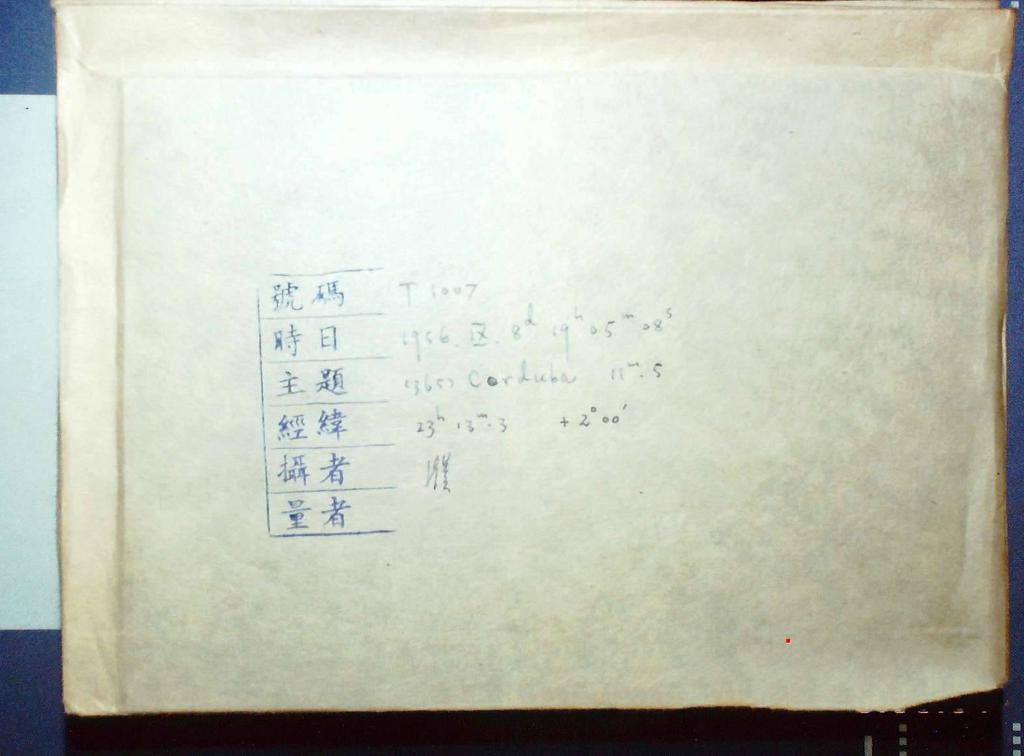 號碼 T 1007
時日 1956. IX. 8ᵈ 19ʰ 05ᵐ 08ˢ
主題 (365) Corduba 11ᵐ.5
經緯 23ʰ 13ᵐ.3 +2°00′
攝者
量者